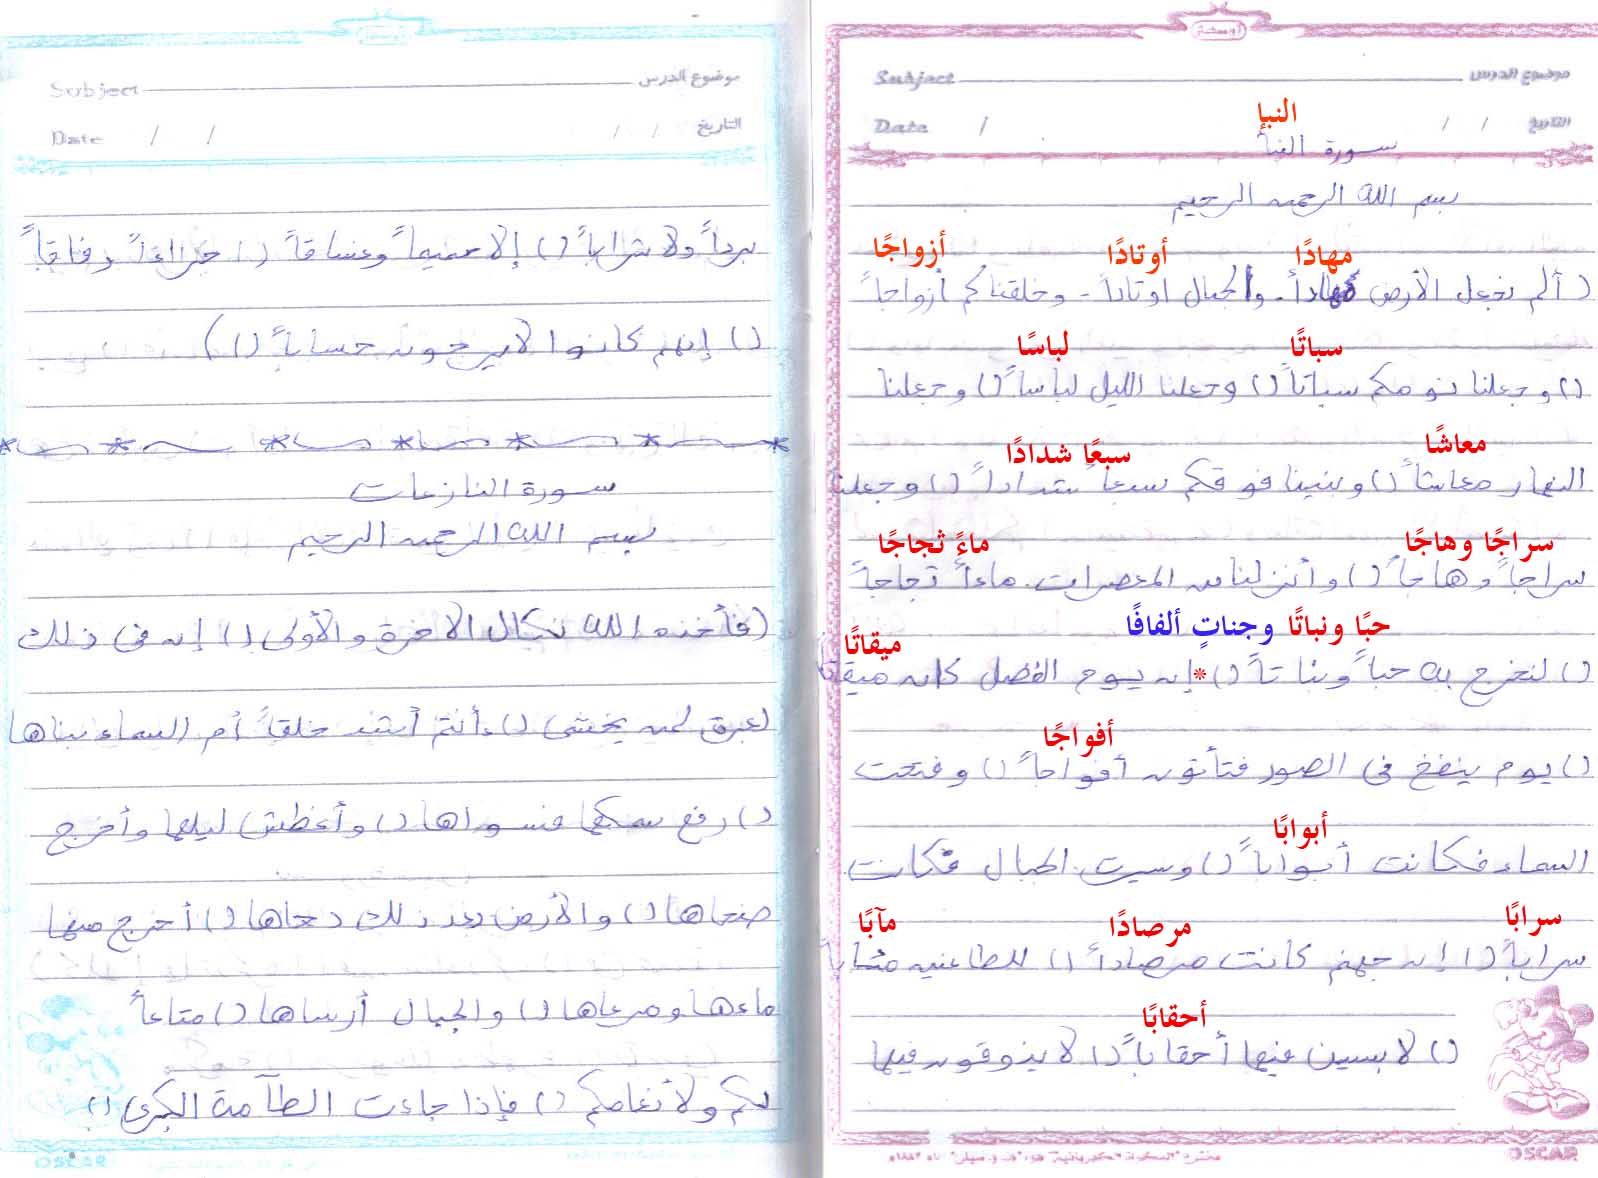 أوسكار
Subject موضوع الدرس
Date / / / التاريخ
النبإ
سورة النبأ
بسم الله الرحمن الرحيم
أزواجًا أوتادًا مهادًا
( ألم نجعل الأرض مهاداً - والجبال اوتاداً - وخلقناكم أزواجاً
لباسًا سباتًا
() وجعلنا نومكم سباتاً () وجعلنا الليل لباساً () وجعلنا
سبعًا شدادًا معاشًا
النهار معاشاً () وبنينا فوقكم سبعاً شداداً () وجعلنا
ماءً ثجاجًا سراجًا وهاجًا
سراجاً وهاجاً () وأنزلنا من المعصرات ماءاً ثجاجاً
ميقاتًا حبًا ونباتًا وجناتٍ ألفافًا
() لنخرج به حباً ونباتاً () * إن يوم الفصل كان ميقاتا
أفواجًا
() يوم ينفخ فى الصور فتأتون أفواجاً () وفتحت
أبوابًا
السماء فكانت أبواباً () وسيرت الجبال فكانت
مآبًا مرصادًا سرابًا
سراباً () إن جهنم كانت مرصاداً () للطاغين مئاباً
أحقابًا
() لابسين فيها أحقاباً () لا يذوقون فيها
OSCAR
Subject موضوع الدرس
Date / / / / التاريخ
برداً ولا شراباً () إلا حميماً وغساقاً () جزاءاً وفاقاً
() إنهم كانوا لا يرجون حساباً ())
سورة النازعات
بسم الله الرحمن الرحيم
(فأخذه الله نكال الآخرة والأولى () إن فى ذلك
لعبرة لمن يخشى () ءأنتم أشد خلقاً أم السماء بناها
() رفع سمكها فسواها () وأغطش ليلها وأخرج
ضحاها () والأرض بعد ذلك دحاها () أخرج منها
ماءها ومرعاها () والجبال أرساها () متاعاً
لكم ولأنعامكم () فإذا جاءت الطآمة الكبرى ()
OSCAR